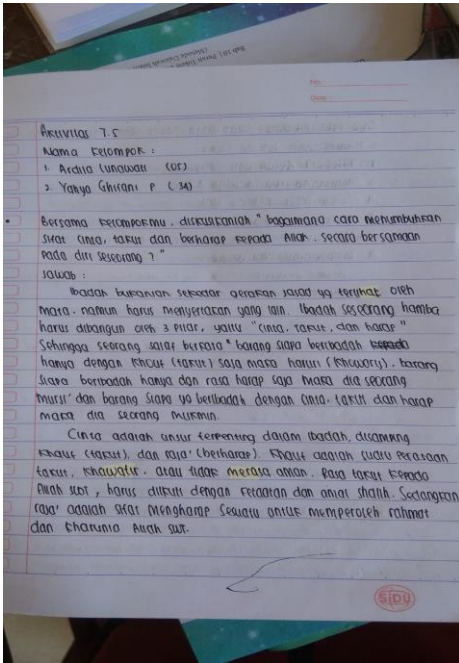 No:
Date:
Aktivitas 7.5
Nama kelompok :
1. Ardita Lunawati (05)
2. Yahya Ghifani P (34)
Bersama kelompokmu, diskusikanlah "bagaimana cara menumbuhkan
sifat cinta, takut dan berharap kepada Allah. secara bersamaan
pada diri seseorang ?"
Jawab :
Ibadah bukanlah sekadar gerakan jasad yg terlihat oleh
mata. namun harus menyertakan yang lain. Ibadah seseorang hamba
harus dibangun oleh 3 pilar, yaitu "cinta, takut, dan harap"
Sehingga seorang salaf berkata "barang siapa beribadah kepada
hanya dengan khouf (takut) saja maka haruri (khowary). barang
siapa beribadah hanya dan rasa harap saja maka dia seorang
mursi' dan barang siapa yg beribadah dengan cinta, takut dan harap
maka dia seorang mukmin.
Cinta adalah unsur terpenting dalam ibadah, disamping
khauf (takut), dan raja' (berharap). Khauf adalah suatu perasaan
takut, khawatir. atau tidak merasa aman. Rasa takut kepada
Allah SWT, harus diikuti dengan ketaatan dan amal shalih. Sedangkan
raja' adalah sifat mengharap sesuatu untuk memperoleh rahmat
dan kharunia Allah swt.
SiDU